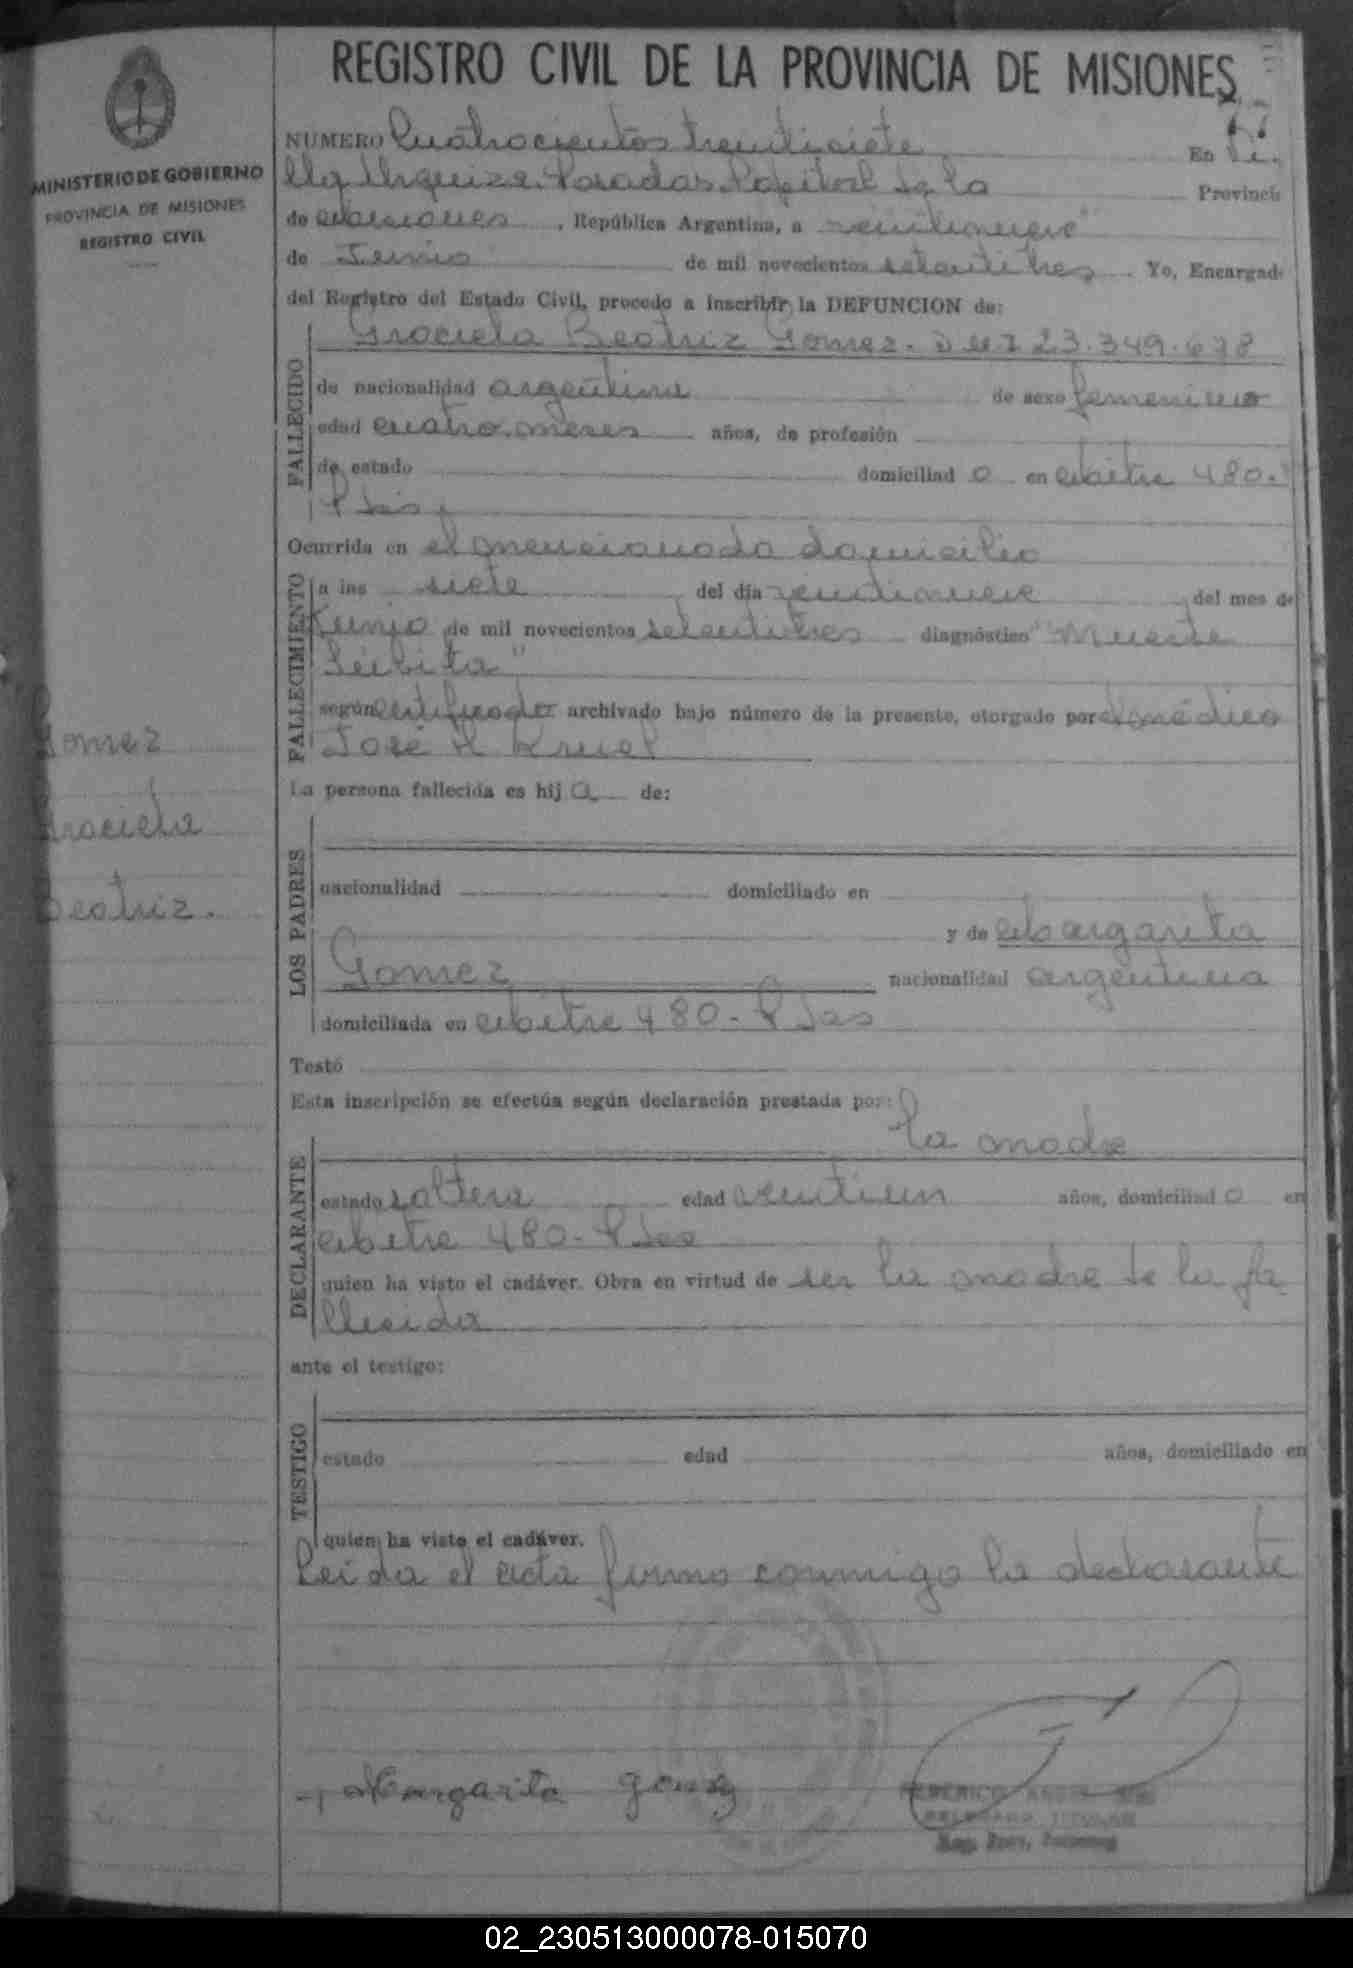 REGISTRO CIVIL DE LA PROVINCIA DE MISIONES
MINISTERIO DE GOBIERNO
PROVINCIA DE MISIONES
REGISTRO CIVIL
NUMERO Cuatrocientos treintisiete En Vi.
lla Urquiza. Posadas. Capital de la Provincia
de Misiones, República Argentina, a veintinueve
de Junio de mil novecientos setentitres. Yo, Encargad
del Registro del Estado Civil, procedo a inscribir la DEFUNCION de:
FALLECIDO
Graciela Beatriz Gomez. D.N.I 23.349.678
de nacionalidad argentina de sexo femenino
edad cuatro meses años, de profesión
de estado domiciliad o en Mitre 480.
Pdas.
Ocurrida en el mencionado domicilio
FALLECIMIENTO
a las siete del día veintinueve del mes de
Junio de mil novecientos setentitres diagnóstico "Muerte
Súbita"
según certificado archivado bajo número de la presente, otorgado por el médico
José H Kruel
Gomez
Graciela
Beatriz.
La persona fallecida es hij a de:
LOS PADRES
nacionalidad domiciliado en
y de Margarita
Gomez nacionalidad argentina
domiciliada en Mitre 480 - Pdas
Testó
Esta inscripción se efectúa según declaración prestada por:
la madre
DECLARANTE
estado soltera edad veintiun años, domiciliad o en
Mitre 480 - Pdas
quien ha visto el cadáver. Obra en virtud de ser la madre de la fa
llecida
ante el testigo:
TESTIGO
estado edad años, domiciliado en
quien ha visto el cadáver.
Leida el acta firma conmigo la declarante
Margarita Gomez
FEDERICO
DELEGADO TITULAR
02_230513000078-015070